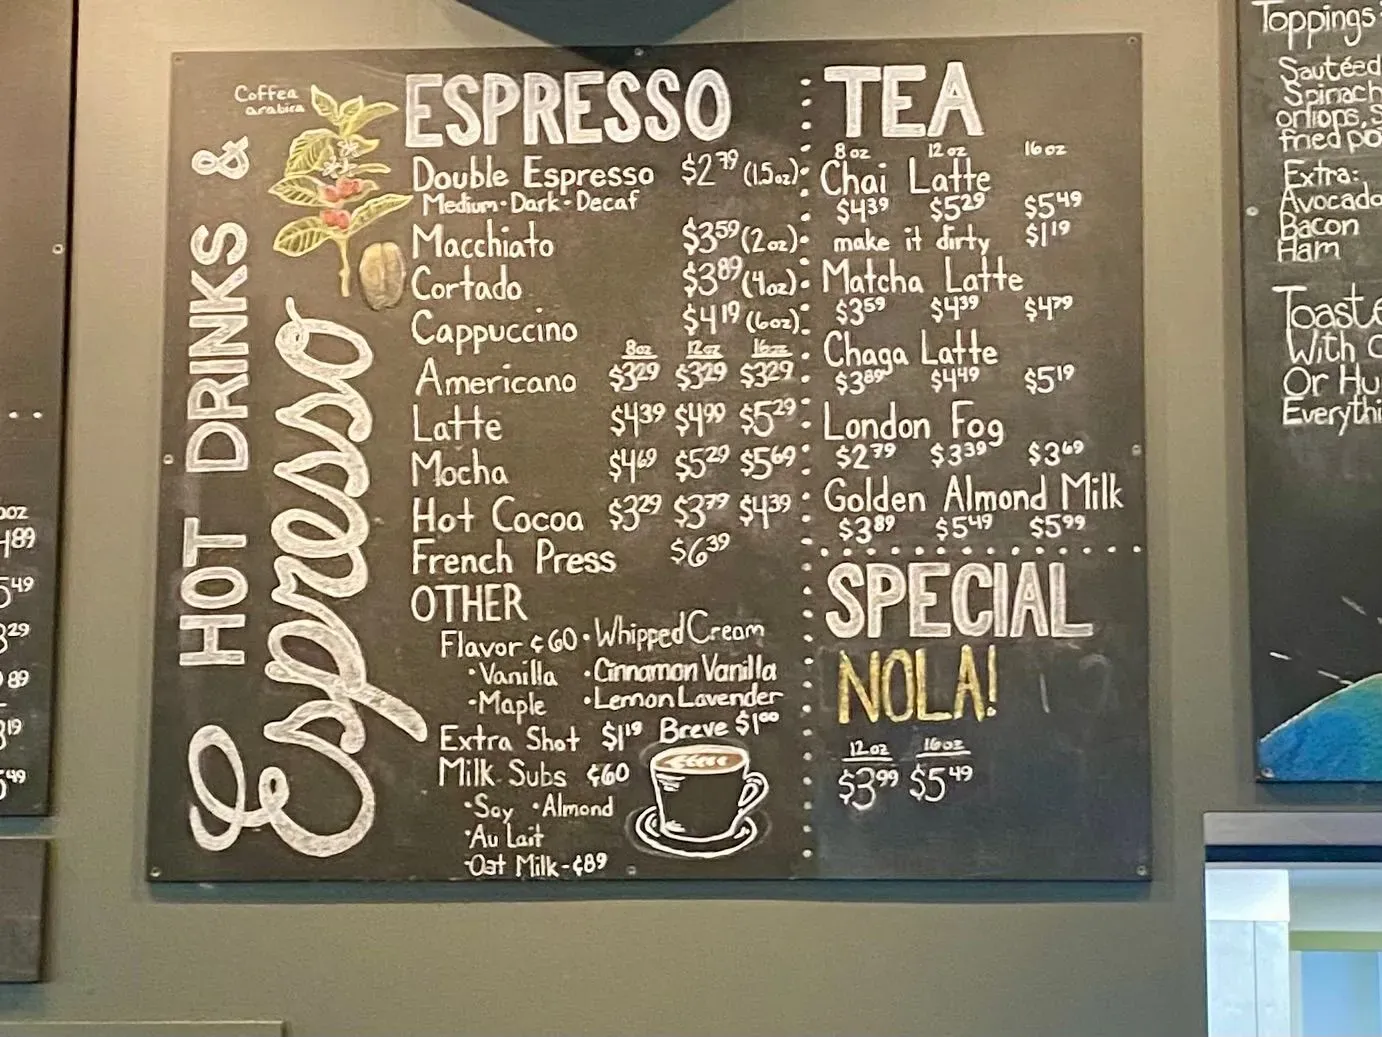 HOT DRINKS &
Espresso
Coffea
arabica
ESPRESSO
Double Espresso $2.79 (1.5oz)
Medium · Dark · Decaf
Macchiato $3.59 (2oz)
Cortado $3.89 (4oz)
Cappuccino $4.19 (6oz)
8oz 12oz 16oz
Americano $3.29 $3.29 $3.29
Latte $4.39 $4.99 $5.29
Mocha $4.69 $5.29 $5.69
Hot Cocoa $3.29 $3.79 $4.39
French Press $6.39
OTHER
Flavor ¢60 · Whipped Cream
· Vanilla · Cinnamon Vanilla
· Maple · Lemon Lavender
Extra Shot $1.19 Breve $1.00
Milk Subs ¢60
· Soy · Almond
· Au Lait
· Oat Milk - ¢89
TEA
8oz 12oz 16oz
Chai Latte
$4.39 $5.29 $5.49
make it dirty $1.19
Matcha Latte
$3.59 $4.39 $4.79
Chaga Latte
$3.89 $4.49 $5.19
London Fog
$2.79 $3.39 $3.69
Golden Almond Milk
$3.89 $5.49 $5.99
SPECIAL
NOLA!
12oz 16oz
$3.99 $5.49
Toppings
Sautéed
Spinach
onions,
fried
Extra:
Avocado
Bacon
Ham
With
Or